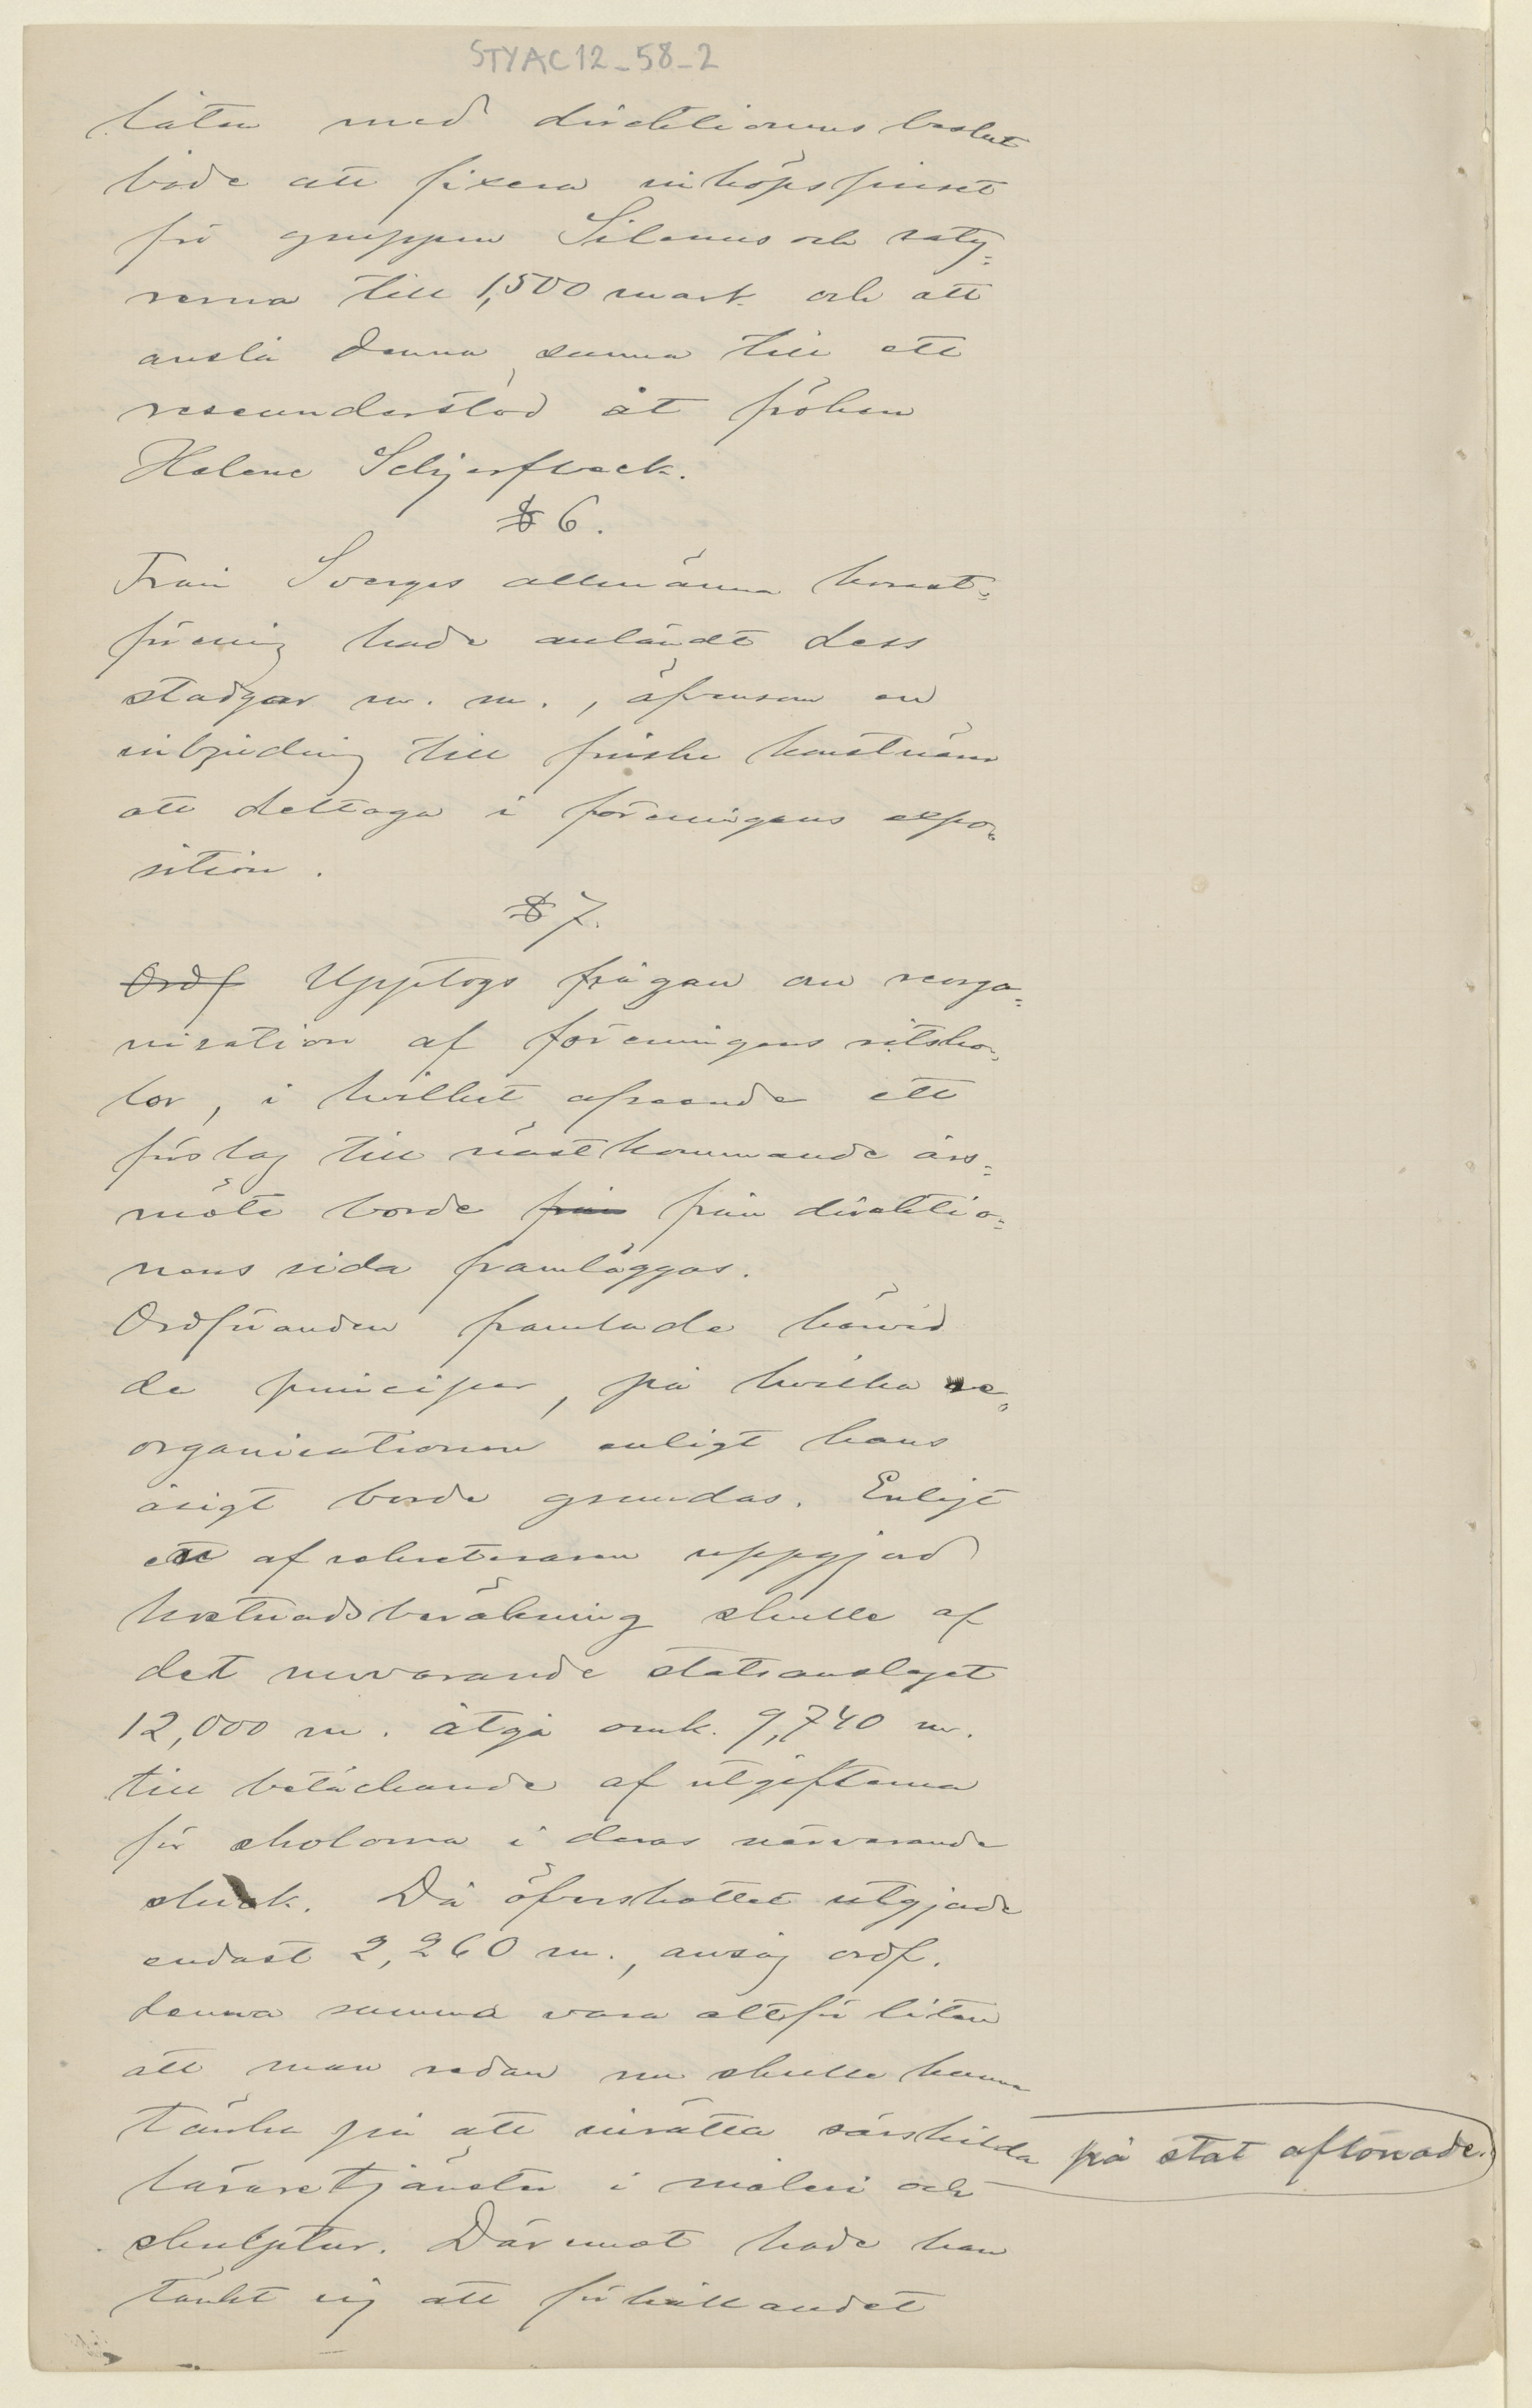 STYAC12_58_2
låten med direktionens beslut
både att fixera inköpspriset
för gruppen Silenus och saty=
rerna till 1,500 mark och att
anslå denna summa till ett
reseunderstöd åt fröken
Helene Schjerfbeck.
§ 6.
Från Sverges allmänna konst=
förening hade anländt dess
stadgar m. m., äfvensom en
inbjudning till finske konstnärer
att deltaga i föreningens expo=
sition.
§ 7.
Ordf Upptogs frågan om reorga=
nisation af föreningens ritsko=
lor, i hvilket afseende ett
förslag till nästkommande års=
möte borde från från direktio=
nens sida framläggas.
Ordföranden framlade härvid
de principer, på hvilka re=
organisationen enligt hans
åsigt borde grundas. Enligt
en af sekreteraren uppgjord
kostnadsberäkning skulle af
det nuvarande statsanslaget
12,000 m. åtgå omk. 9,740 m.
till betäckande af utgifterna
för skolorna i deras närvarande
skick. Då öfverskottet utgjorde
endast 2,260 m., ansåg ordf.
denna summa vara alltför liten
att man redan nu skulle kunna
tänka på att inrätta särskilda på stat aflönade
läraretjänster i måleri och
skulptur. Däremot hade han
tänkt sig att förhållandet